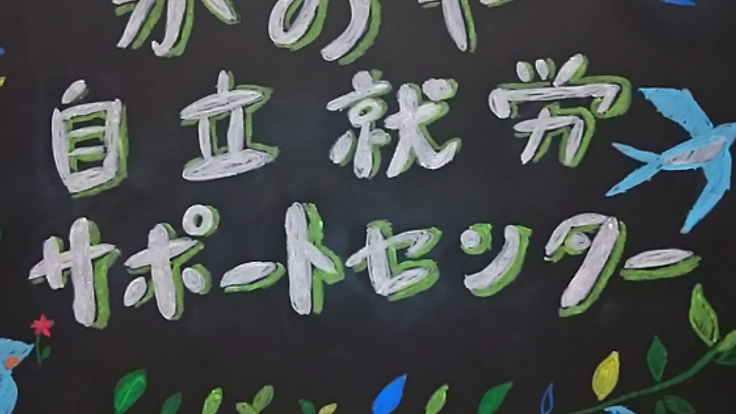 自立就労
サポートセンター